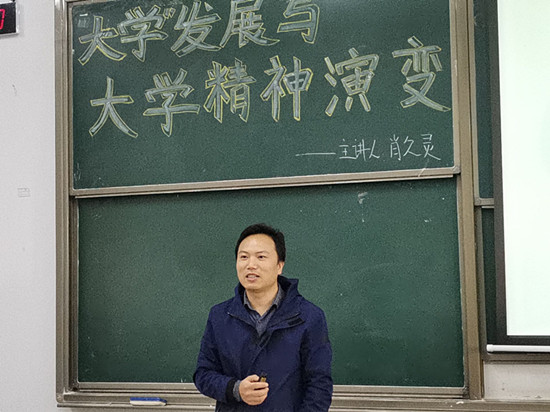 大学发展与
大学精神演变
——主讲人 肖久灵